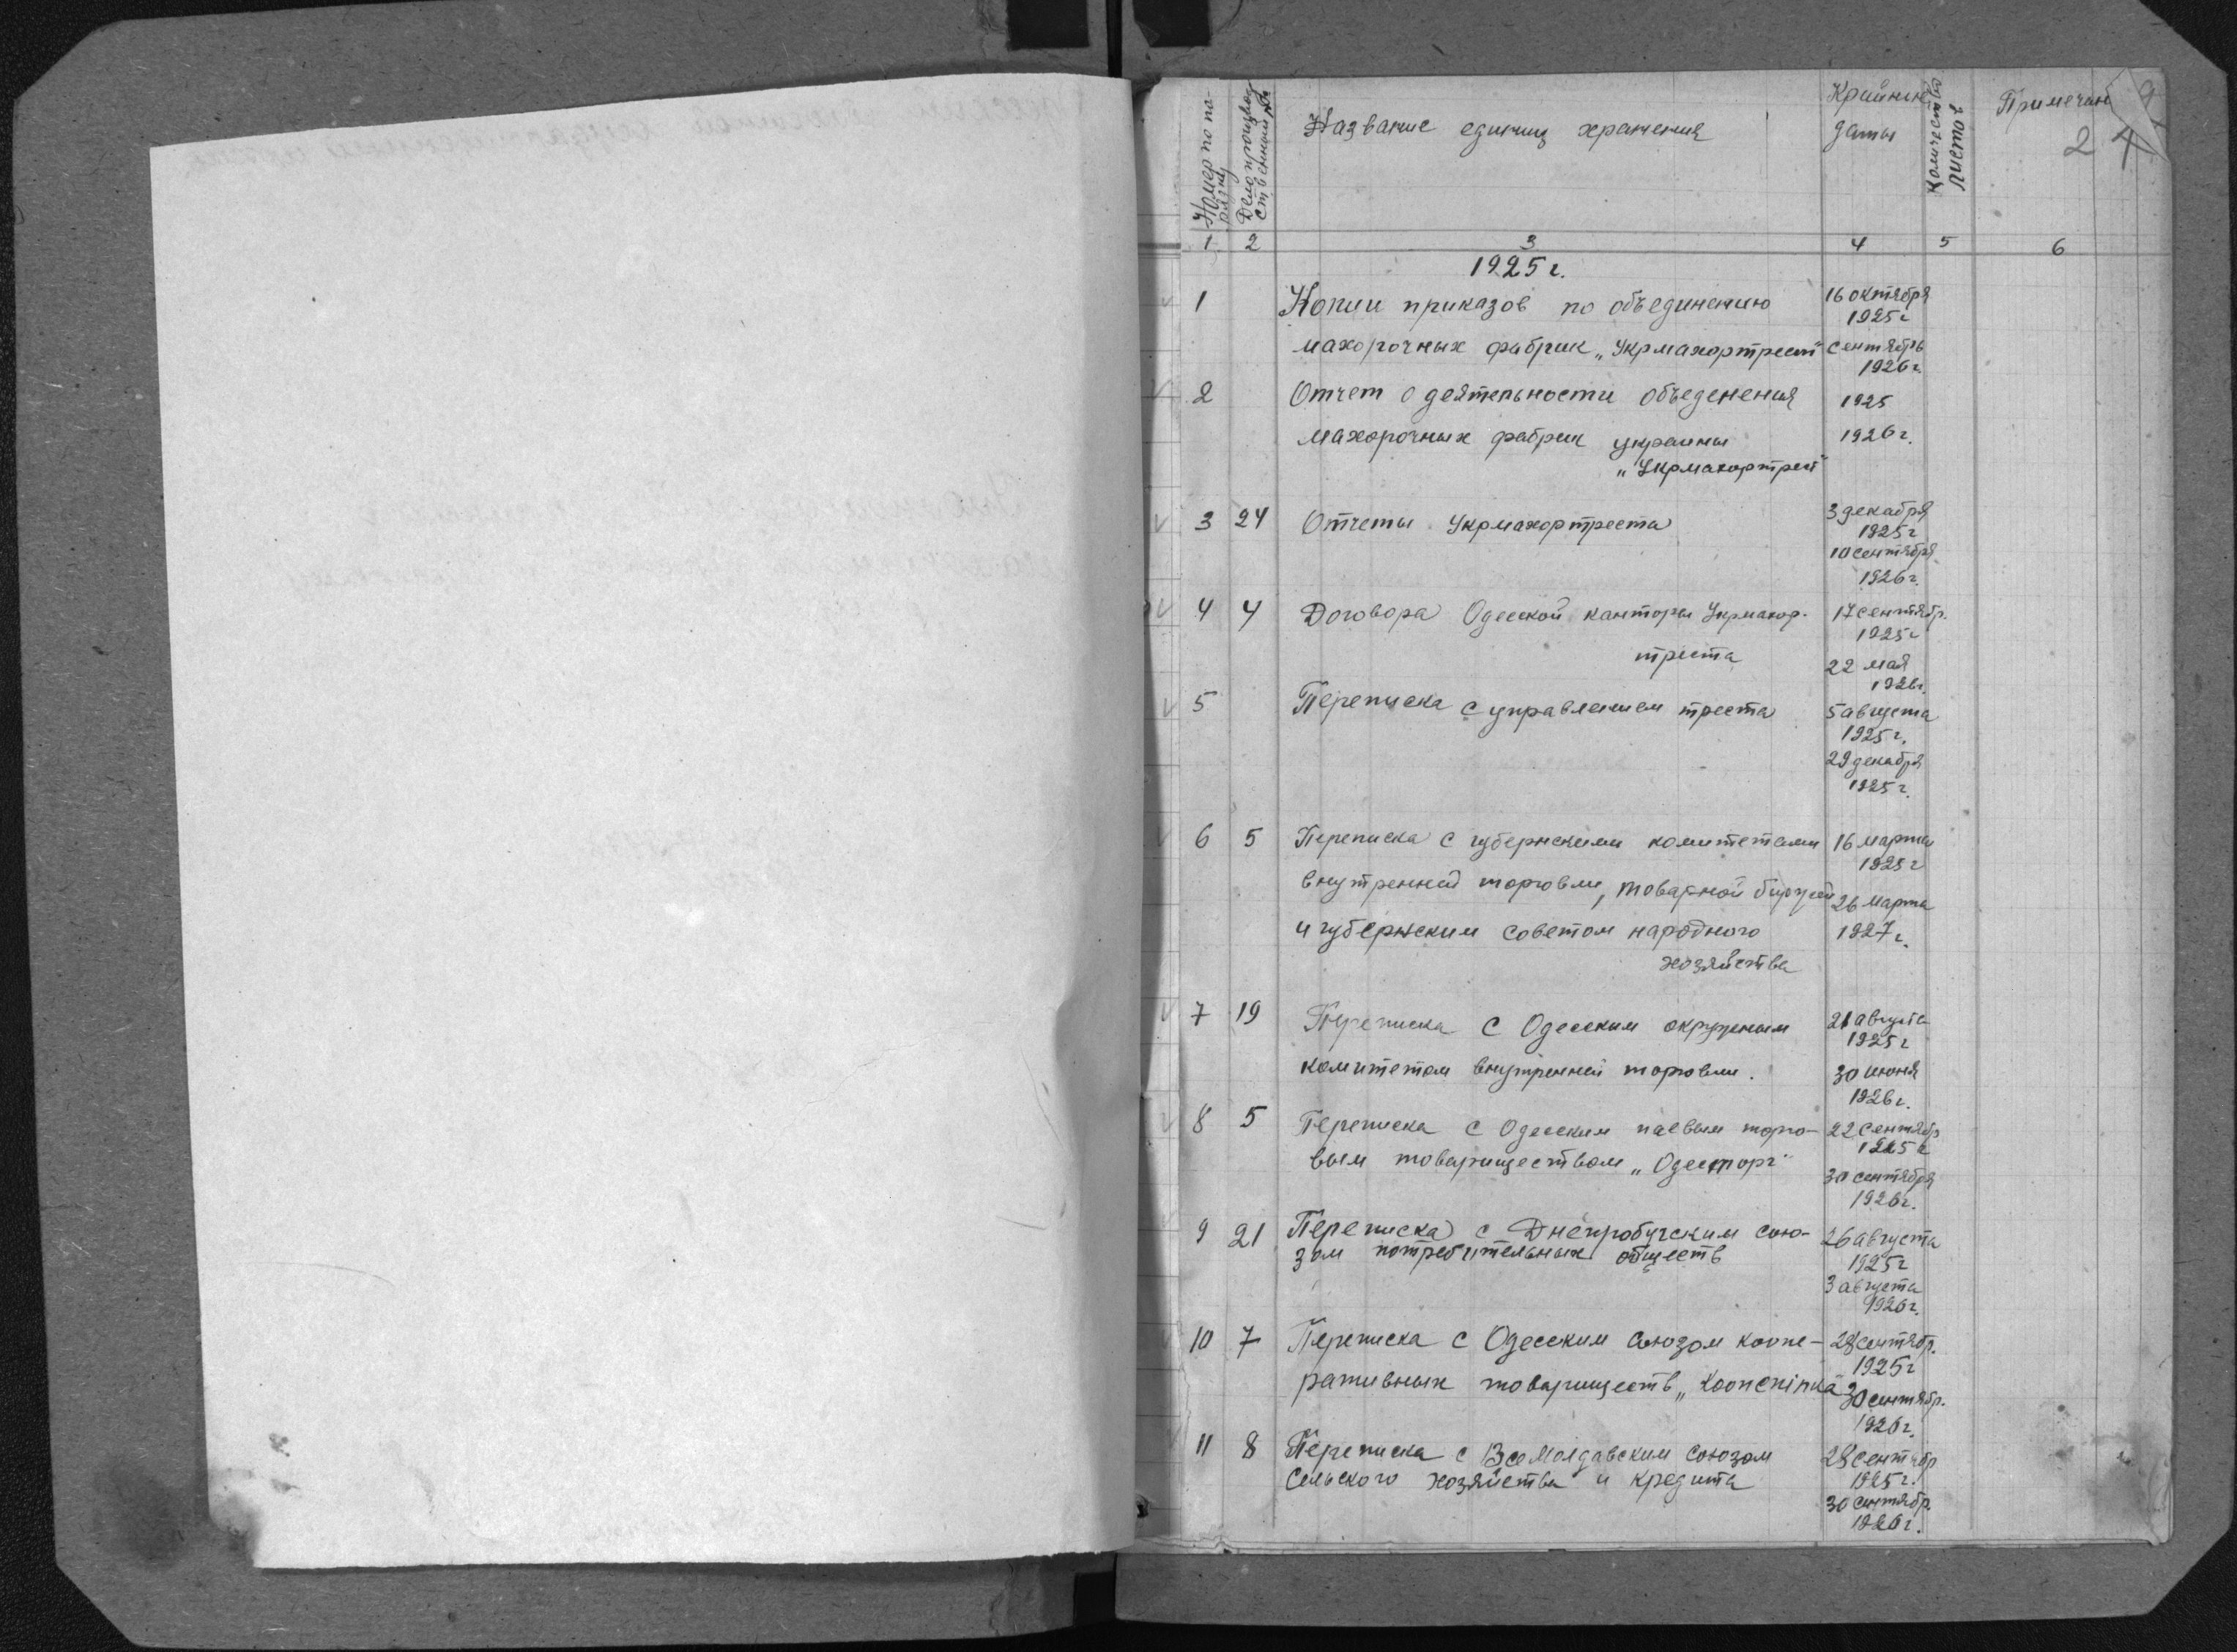 Номер по порядку
Делопроизводственный №
Название единиц хранения
Крайние даты
Количество листов
Примечан
9
2 4
1 2 3 4 5 6
1925 г.
1 Копии приказов по объединению 16 октября 1925 г
махорочных фабрик „Укрмахортрест" сентябрь 1926 г.
2 Отчет о деятельности объеденения 1925
махорочных фабрик украины 1926 г.
„Укрмахортрест"
3 24 Отчеты Укрмахортреста 3 декабря 1925 г
10 сентября 1926 г.
4 4 Договора Одесской канторы Укрмахор- 17 сентябр. 1925 г
треста 22 мая 1926 г.
5 Переписка с управлением треста 5 августа 1925 г.
29 декабря 1925 г.
6 5 Переписка с губернскими комитетами 16 марта 1925 г
внутренней торговли, товарной биржей 26 марта
и губернским советом народного 1927 г.
хозяйства
7 19 Переписка с Одесским окружным 21 августа 1925 г
комитетом внутренней торговли. 30 июня 1926 г.
8 5 Переписка с Одесским паевым торго- 22 сентябр 1925 г
вым товариществом „Одесторг" 30 сентября 1926 г.
9 21 Переписка с Днепробугским сою- 26 августа 1925 г
зом потребительных обществ 3 августа 1926 г.
10 7 Переписка с Одесским союзом коопе- 28 сентябр. 1925 г
ративных товариществ „Коопспілка" 30 сентябр. 1926 г.
11 8 Переписка с ВсеМолдавским союзом 28 сентябр 1925 г.
сельского хозяйства и кредита 30 сентябр. 1926 г.